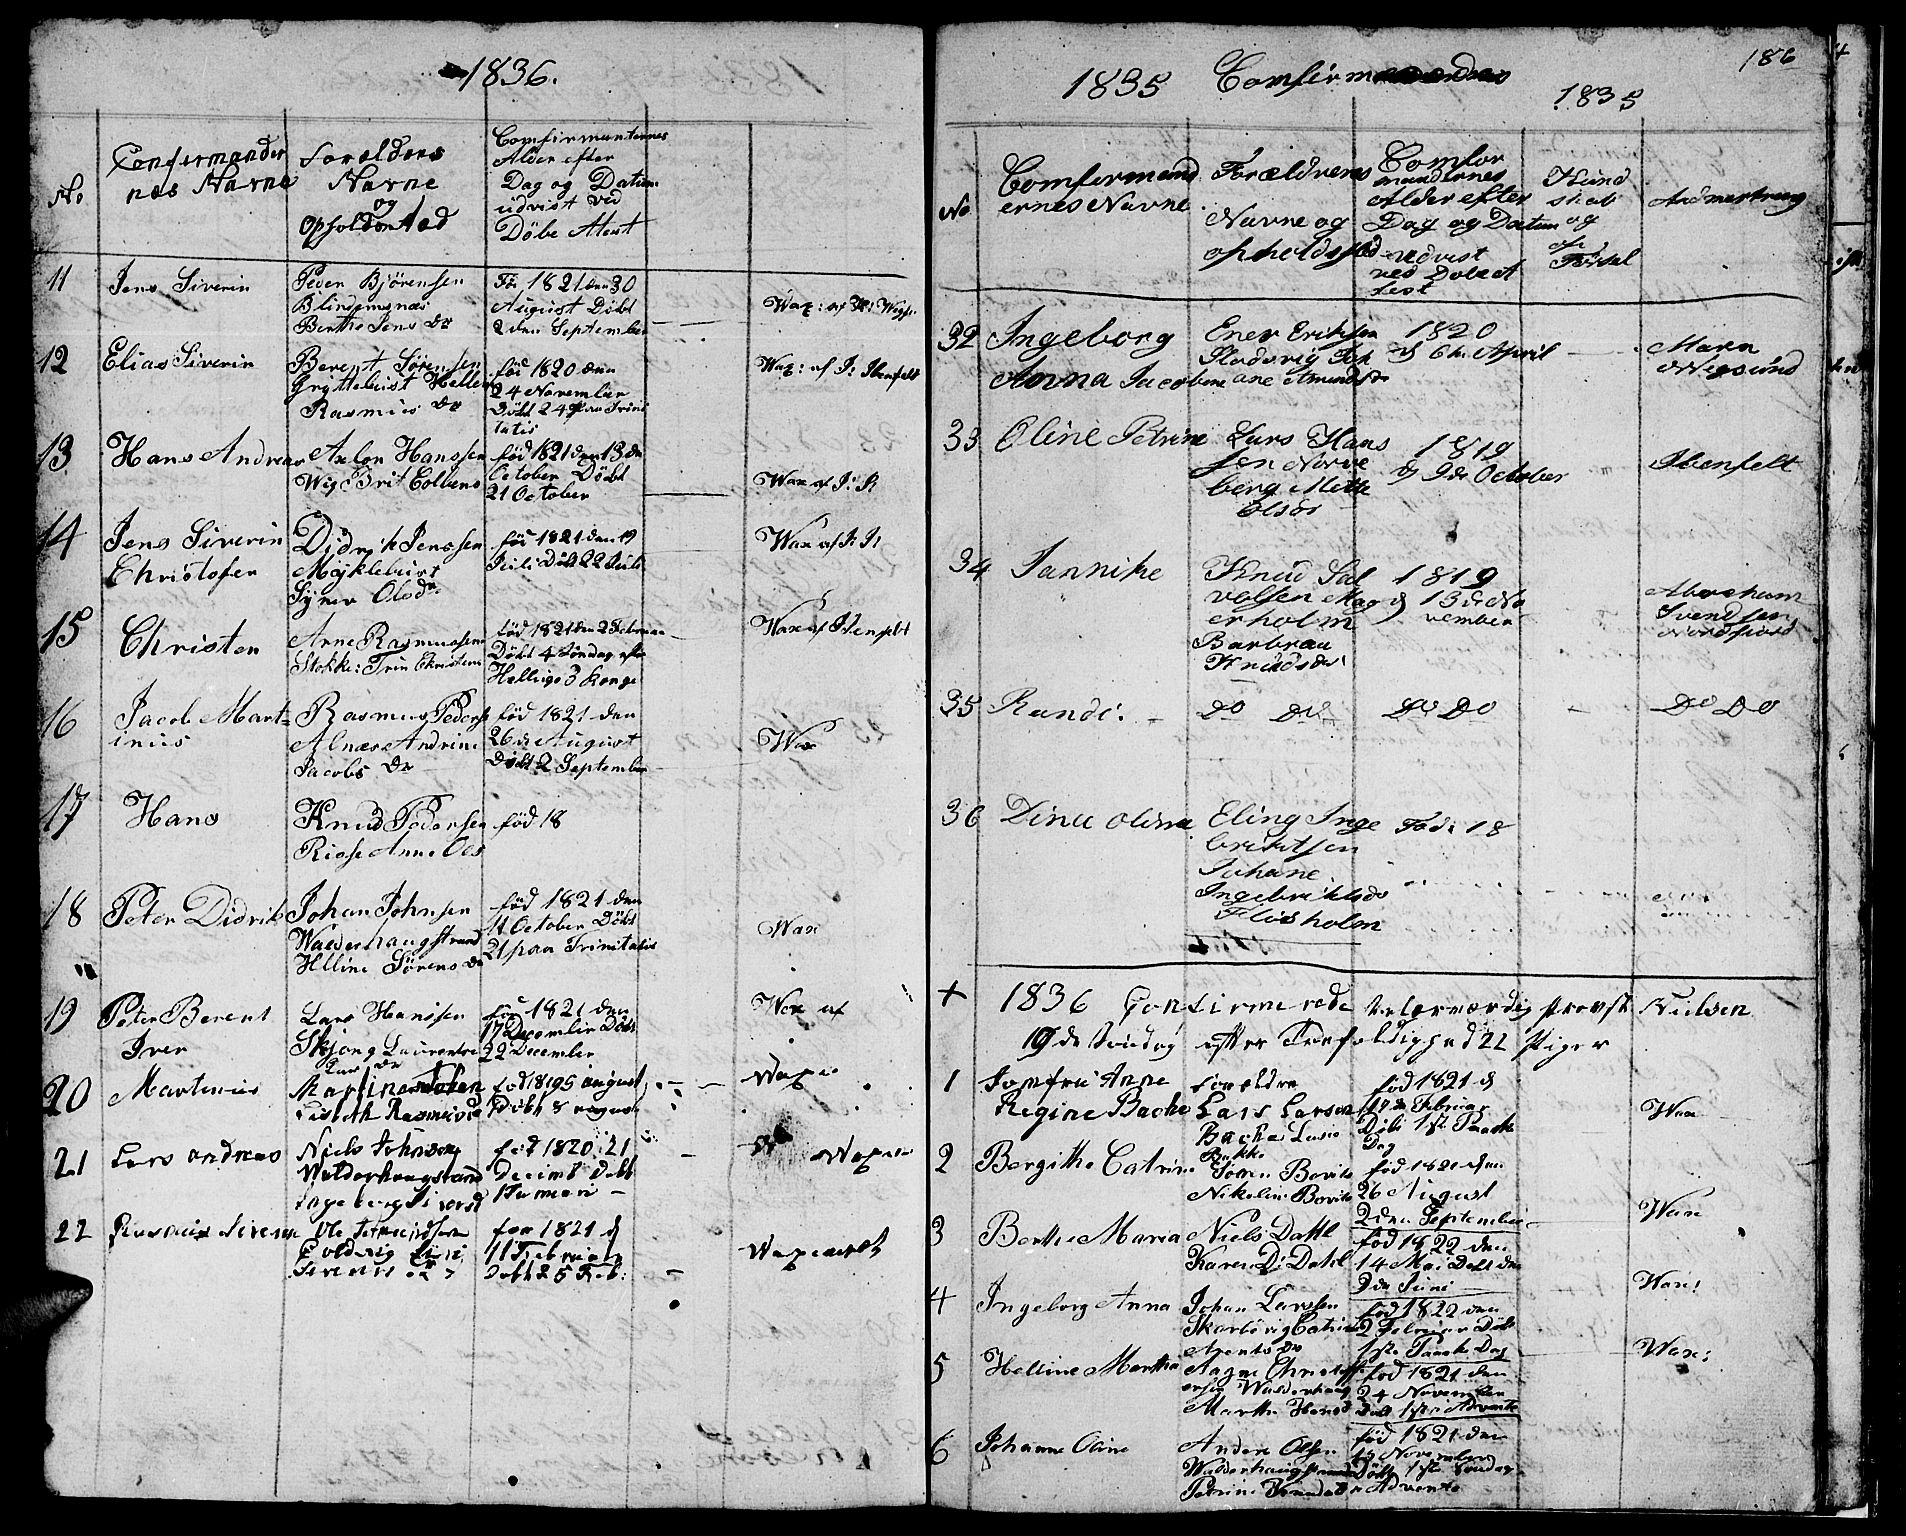 1836.
No
Confermander
nes Navne
Foreldres
Navne
og
Opholdsted
Comfirmanternes
Alder efter
Dag og Datum
udvist ved
Döbe Atest
11
Jens Siverin
Peder Bjørensen
Blindemsnæs
Berthe Jens Dr
Fö: 1821 den 30
August Döbt
2 den September
12
Elias Siverin
Berent Sørensen
Gryttehust Hellen
Rasmus Dr
föd 1820 den
24 November
Döbt 24 paa Trini
tatis
Wax: af J: Ibenfelt
13
Hans Andreas
Axlon Hanssen
Wig Brit Colbens
föd 1821 den 13 de
October Döbt
21 October
Wax af J: I
14
Jens Siverin
Christofer
Didrik Jenssen
Myklebust
Synev Olsdr
föd 1821 den 19
Juli Döbt 22 Juli
Wax af J: I
15
Christen
Arne Rasmussen
Stokke: Trin Christens
föd 1821 den 2 Februar
Döbt 4 Söndag efter
Hellige 3 Konge
Wax af Ibenfelt
16
Jacob Mart-
inus
Rasmus Peders
Alnæs Andrine
Jacobs Dr
föd 1821 den
26 de August
Döbt 2 September
Wax
17
Hans
Knud Pedersen
Riose Anne Ols
föd 18
18
Peter Didrik
Johan Johnsen
Walderhaugstrand
Elline Sørens Dr
föd 1821 den
11 October Döbt
21 paa Trinitatis
Wax
19
Peter Berent
Iver
Lars Hanssen
Skjong Laurentse
Lar Dr
föd 1821 den
17 December Döbt
22 December
Wax af
20
Martinus
Martin
Lisbeth Rasmusd
föd 1819 5 august
Döbt 8 august
Waxe
21
Lars andreas
Niels Johnsen
Walderhaugstrand
Ingeborg Siversd
föd 1820: 21
Decimb Döbt
1 Januari
22
Rasmus Siverin
Ole
Goldsvig Lini
Siverins
föd 1821 d
11 Februar
Döbt 25 Feb:
186
1835
Comfirmandens
1835
No
Comfirmand
ernes Navne
Forældrenes
Navne og
opholdsted
Comfor
mandernes
Alder efter
Dag og Datum
udvist
ved Dobeat
test
Kund
skab
og
Fordel
Anmerkning
32
Ingeborg
Anna Jacobine
Ener Eriksen
Pladsvig Joh
ane Amundsdr
1820
d 6 te April
Mara
Wegsund
33
Oline Petrine
Lars Hans
sen Norve
berg Mette
Olsdr
1819
d 9 de October
Ibenfelt
34
Jannike
Knud Sal
vessen Mag
erholm
Barbrau
Knudsdr
1819
d 13 de No
vember
Abraham
Svendsen
Nordfiord
35
Randi:
Do Do
Do Do
Do Do
36
Dine Oline
Eling Inge
brigtsen
Johane
Ingebriktsdr
Flosholm
Född 18
+ 1836 Confirmerede Velærværdig Provst Nielsen
19 de Söndag efter Trefoldighed 22 Piger
1
Jomfru Anne
Regine Backe
Foreldre
Lars Larsen
Backe
Bakke
föd 1821 d
Februar
Döbt 1ste Paaske
Dag
Wax
2
Bergithe Catrine
Soren Bovits
Nikoline Bovits
föd 1821 den
26 August
2 den September
Waxe
3
Berthe Maria
Niels Dahl
Karen D: Dahl
föd 1822 den
14 Mai Döbt den
9 de Juni
Wax:
4
Ingeborg Anna
Johan Larssen
Skarbövig Catrine
Arents Dr
föd 1822 den
2 Februar Döbt
1ste Paaske Dag
Wax:
5
Helline Martha
Aagne Christoff
ersen Walderhaug
Marthe Hansd
föd 1821 den
24 November
Döbt 1ste i Advente
6
Johanne Oline
Anders Olsen
Walderhaugstrand
Petrine Knudsdr
föd 1821 den
18 November
Döbt 1ste Söndag
i Advente